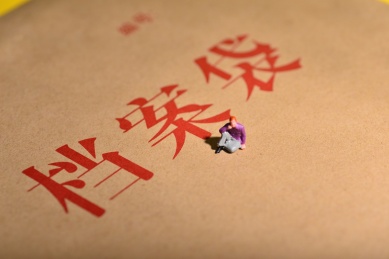 档案袋